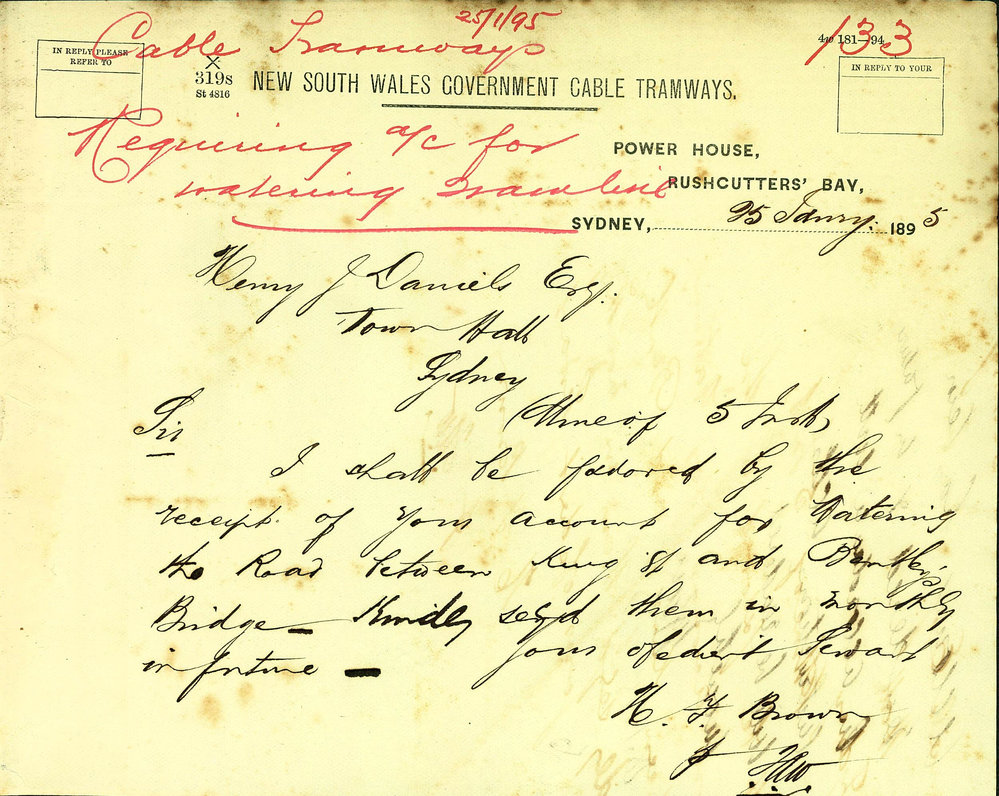 25/1/95
Cable Tramways
133
4to 181—94.
IN REPLY PLEASE
REFER TO
X
319s
St 4816
IN REPLY TO YOUR
NEW SOUTH WALES GOVERNMENT CABLE TRAMWAYS.
Requiring a/c for
watering tramline
POWER HOUSE,
RUSHCUTTERS' BAY,
SYDNEY, 25 Janry. 1895
Henry J Daniels Esq.
Town Hall
Sydney
(Mine of 5 Inst)
Sir
I shall be favored by the
receipt of your account for Watering
the Road between King St and Bentley's
Bridge — Kindly send them in monthly
in future — Your obedient Servant
H. F. Brown